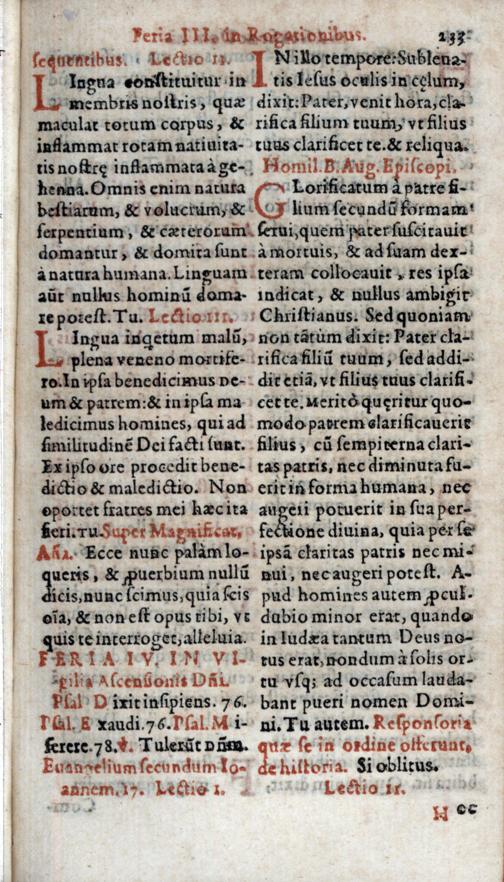 Feria III. in Rogationibus. 233
sequentibus. Lectio II.
LIngua constituitur in
membris nostris, quæ
maculat totum corpus, &
inflammat rotam natiuita-
tis nostrę inflammata à ge-
henna. Omnis enim natura
bestiarum, & volucrum, &
serpentium, & cæterorum
domantur, & domita sunt
à natura humana. Linguam
aūt nullus hominū doma-
re potest. Tu. Lectio III.
LIngua inqetum malū,
plena veneno mortife-
ro. In ipsa benedicimus De-
um & patrem: & in ipsa ma
ledicimus homines, qui ad
similitudinē Dei facti sunt.
Ex ipso ore procedit bene-
dictio & maledictio. Non
oportet fratres mei hæc ita
fieri. Tu. Super Magnificat,
Aña. Ecce nunc palàm lo-
queris, & ꝓuerbium nullū
dicis, nunc scimus, quia scis
oīa, & non est opus tibi, vt
quis te interroget, alleluia.
FERIA IV. IN VI-
gilia Ascensionis Dñi.
Psal Dixit insipiens. 76.
Psal. Exaudi. 76. Psal. Mi-
serere. 78. ℣. Tulerūt Dñm.
Euangelium secundum Io-
annem. 17. Lectio I.
IN illo tempore: Subleua-
tis Iesus oculis in cęlum,
dixit: Pater, venit hora, cla-
rifica filium tuum, vt filius
tuus clarificet te. & reliqua.
Homil. B. Aug. Episcopi.
GLorificatum à patre fi-
lium secundū formam
serui, quem pater suscitauit
à mortuis, & ad suam dex-
teram collocauit, res ipsa
indicat, & nullus ambigit
Christianus. Sed quoniam
non tātùm dixit: Pater cla-
rifica filiū tuum, sed addi-
dit etiā, vt filius tuus clarifi-
cet te. Meritò quęritur quo-
modo patrem clarificauerit
filius, cū sempiterna clari-
tas patris, nec diminuta fu-
erit in forma humana, nec
augeri potuerit in sua per-
fectione diuina, quia per se
ipsā claritas patris nec mi-
nui, nec augeri potest. A-
pud homines autem ꝓcul-
dubio minor erat, quando
in Iudæa tantum Deus no-
tus erat, nondum à solis or-
tu vsq; ad occasum lauda-
bant pueri nomen Domi-
ni. Tu autem. Responsoria
quæ se in ordine offerunt,
de historia. Si oblitus.
Lectio II.
H cc